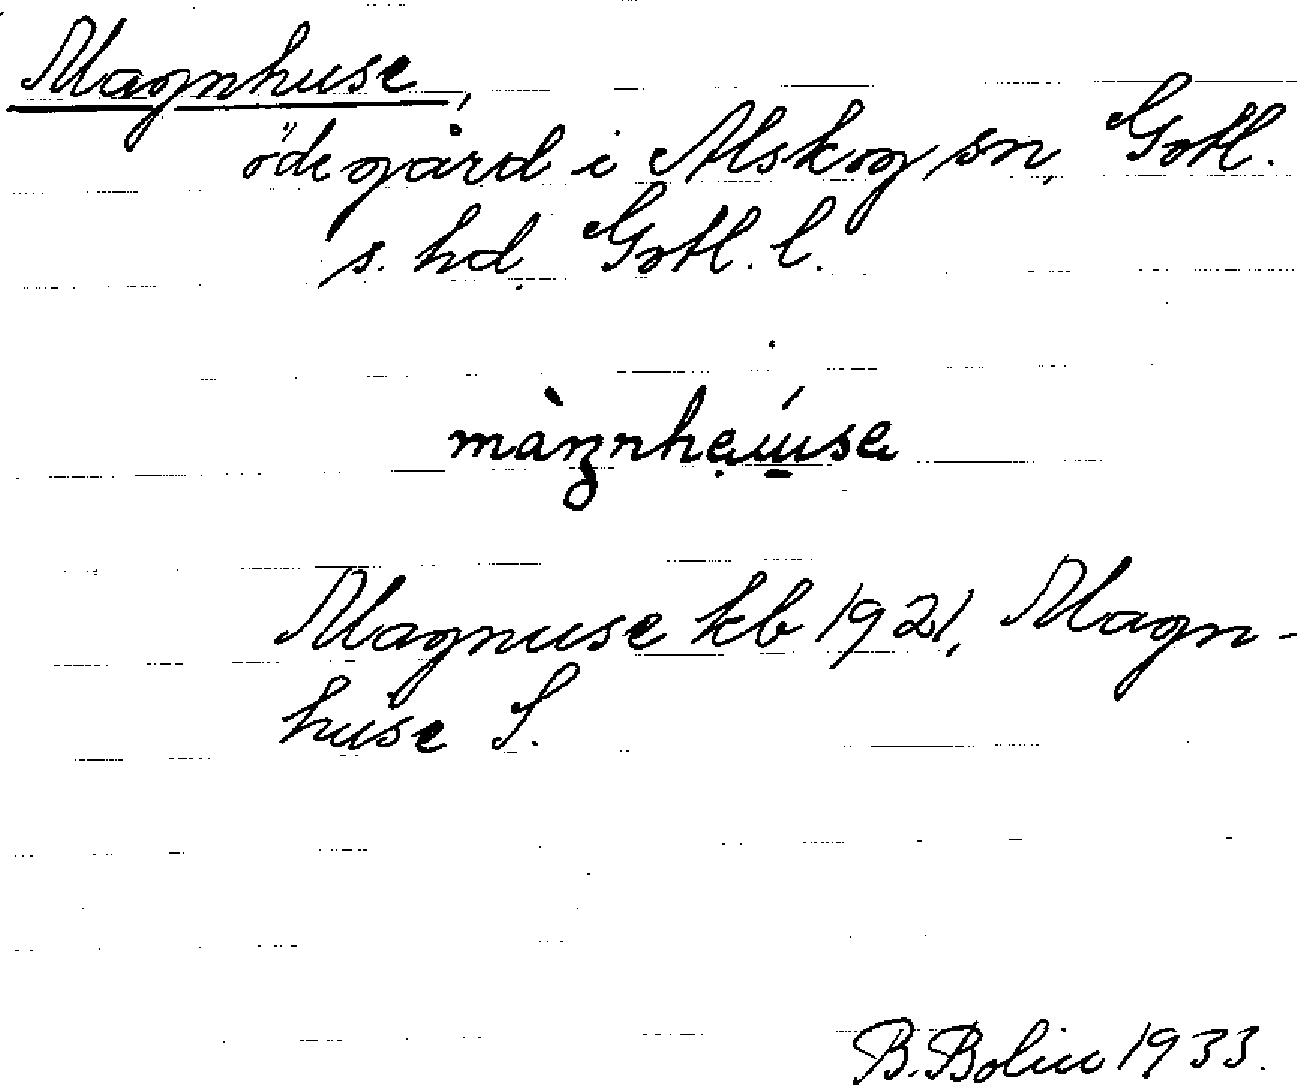 Magnhuse,
ödegård i Alskog sn, Gotl.
s. hd. Gotl. l.
Magnuse kb 1921, Magn-
huse S.
B. Bolin 1933.